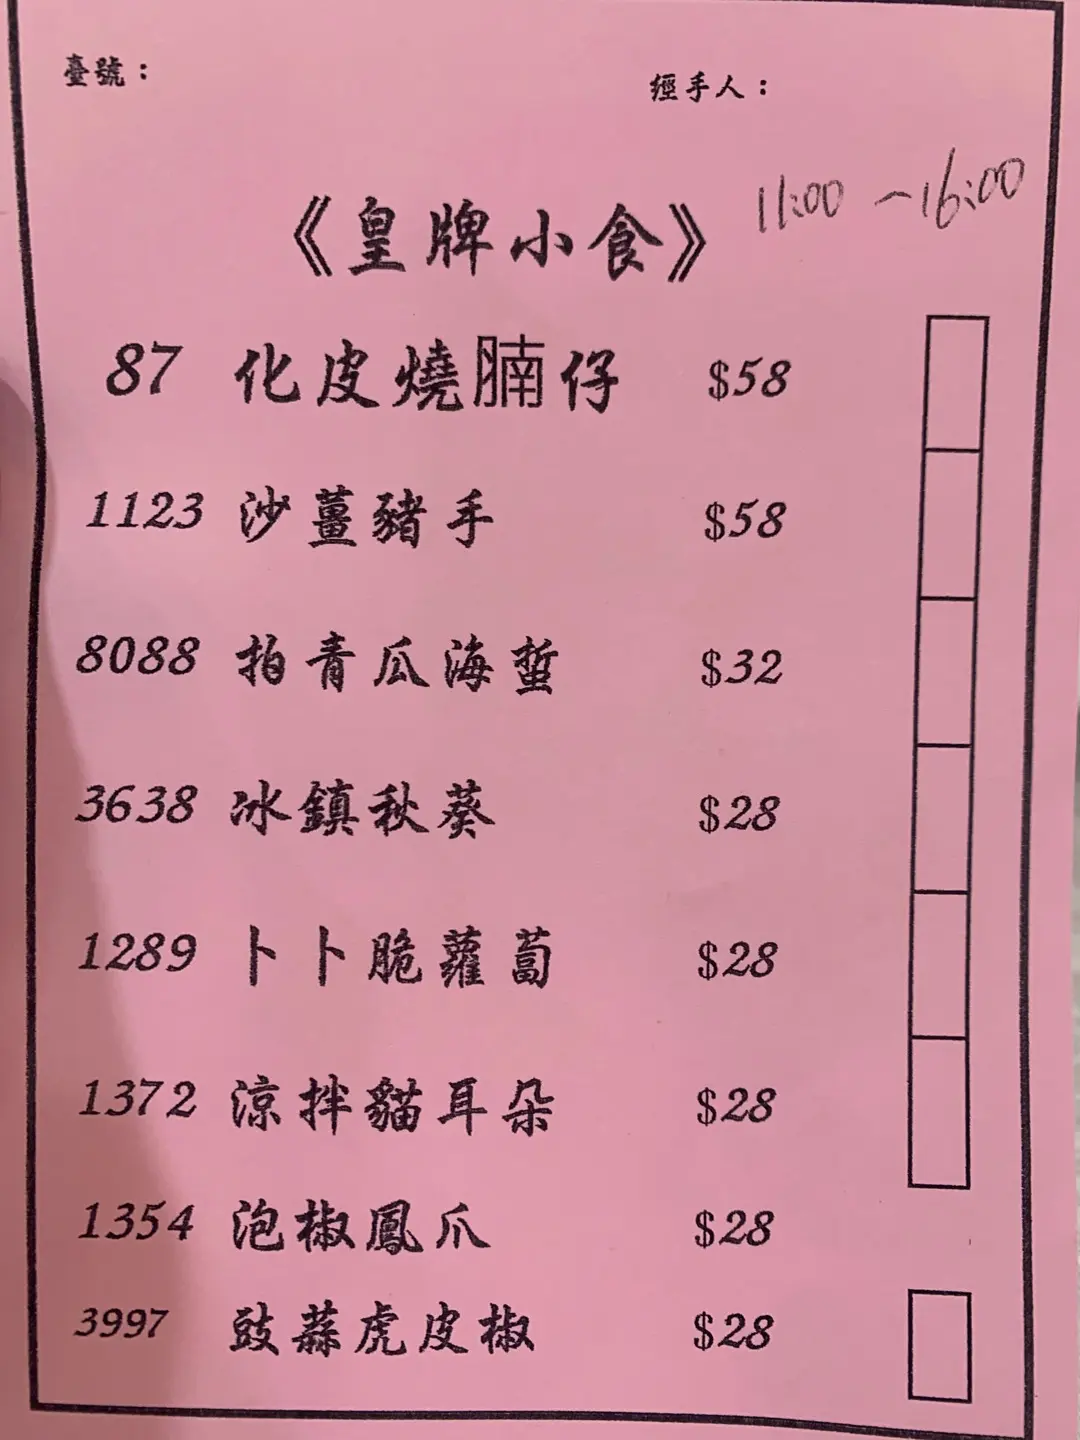 臺號：
經手人：
11:00 ~16:00
《皇牌小食》
87 化皮燒腩仔 $58
1123 沙薑豬手 $58
8088 拍青瓜海蜇 $32
3638 冰鎮秋葵 $28
1289 卜卜脆蘿蔔 $28
1372 涼拌貓耳朵 $28
1354 泡椒鳳爪 $28
3997 豉蒜虎皮椒 $28